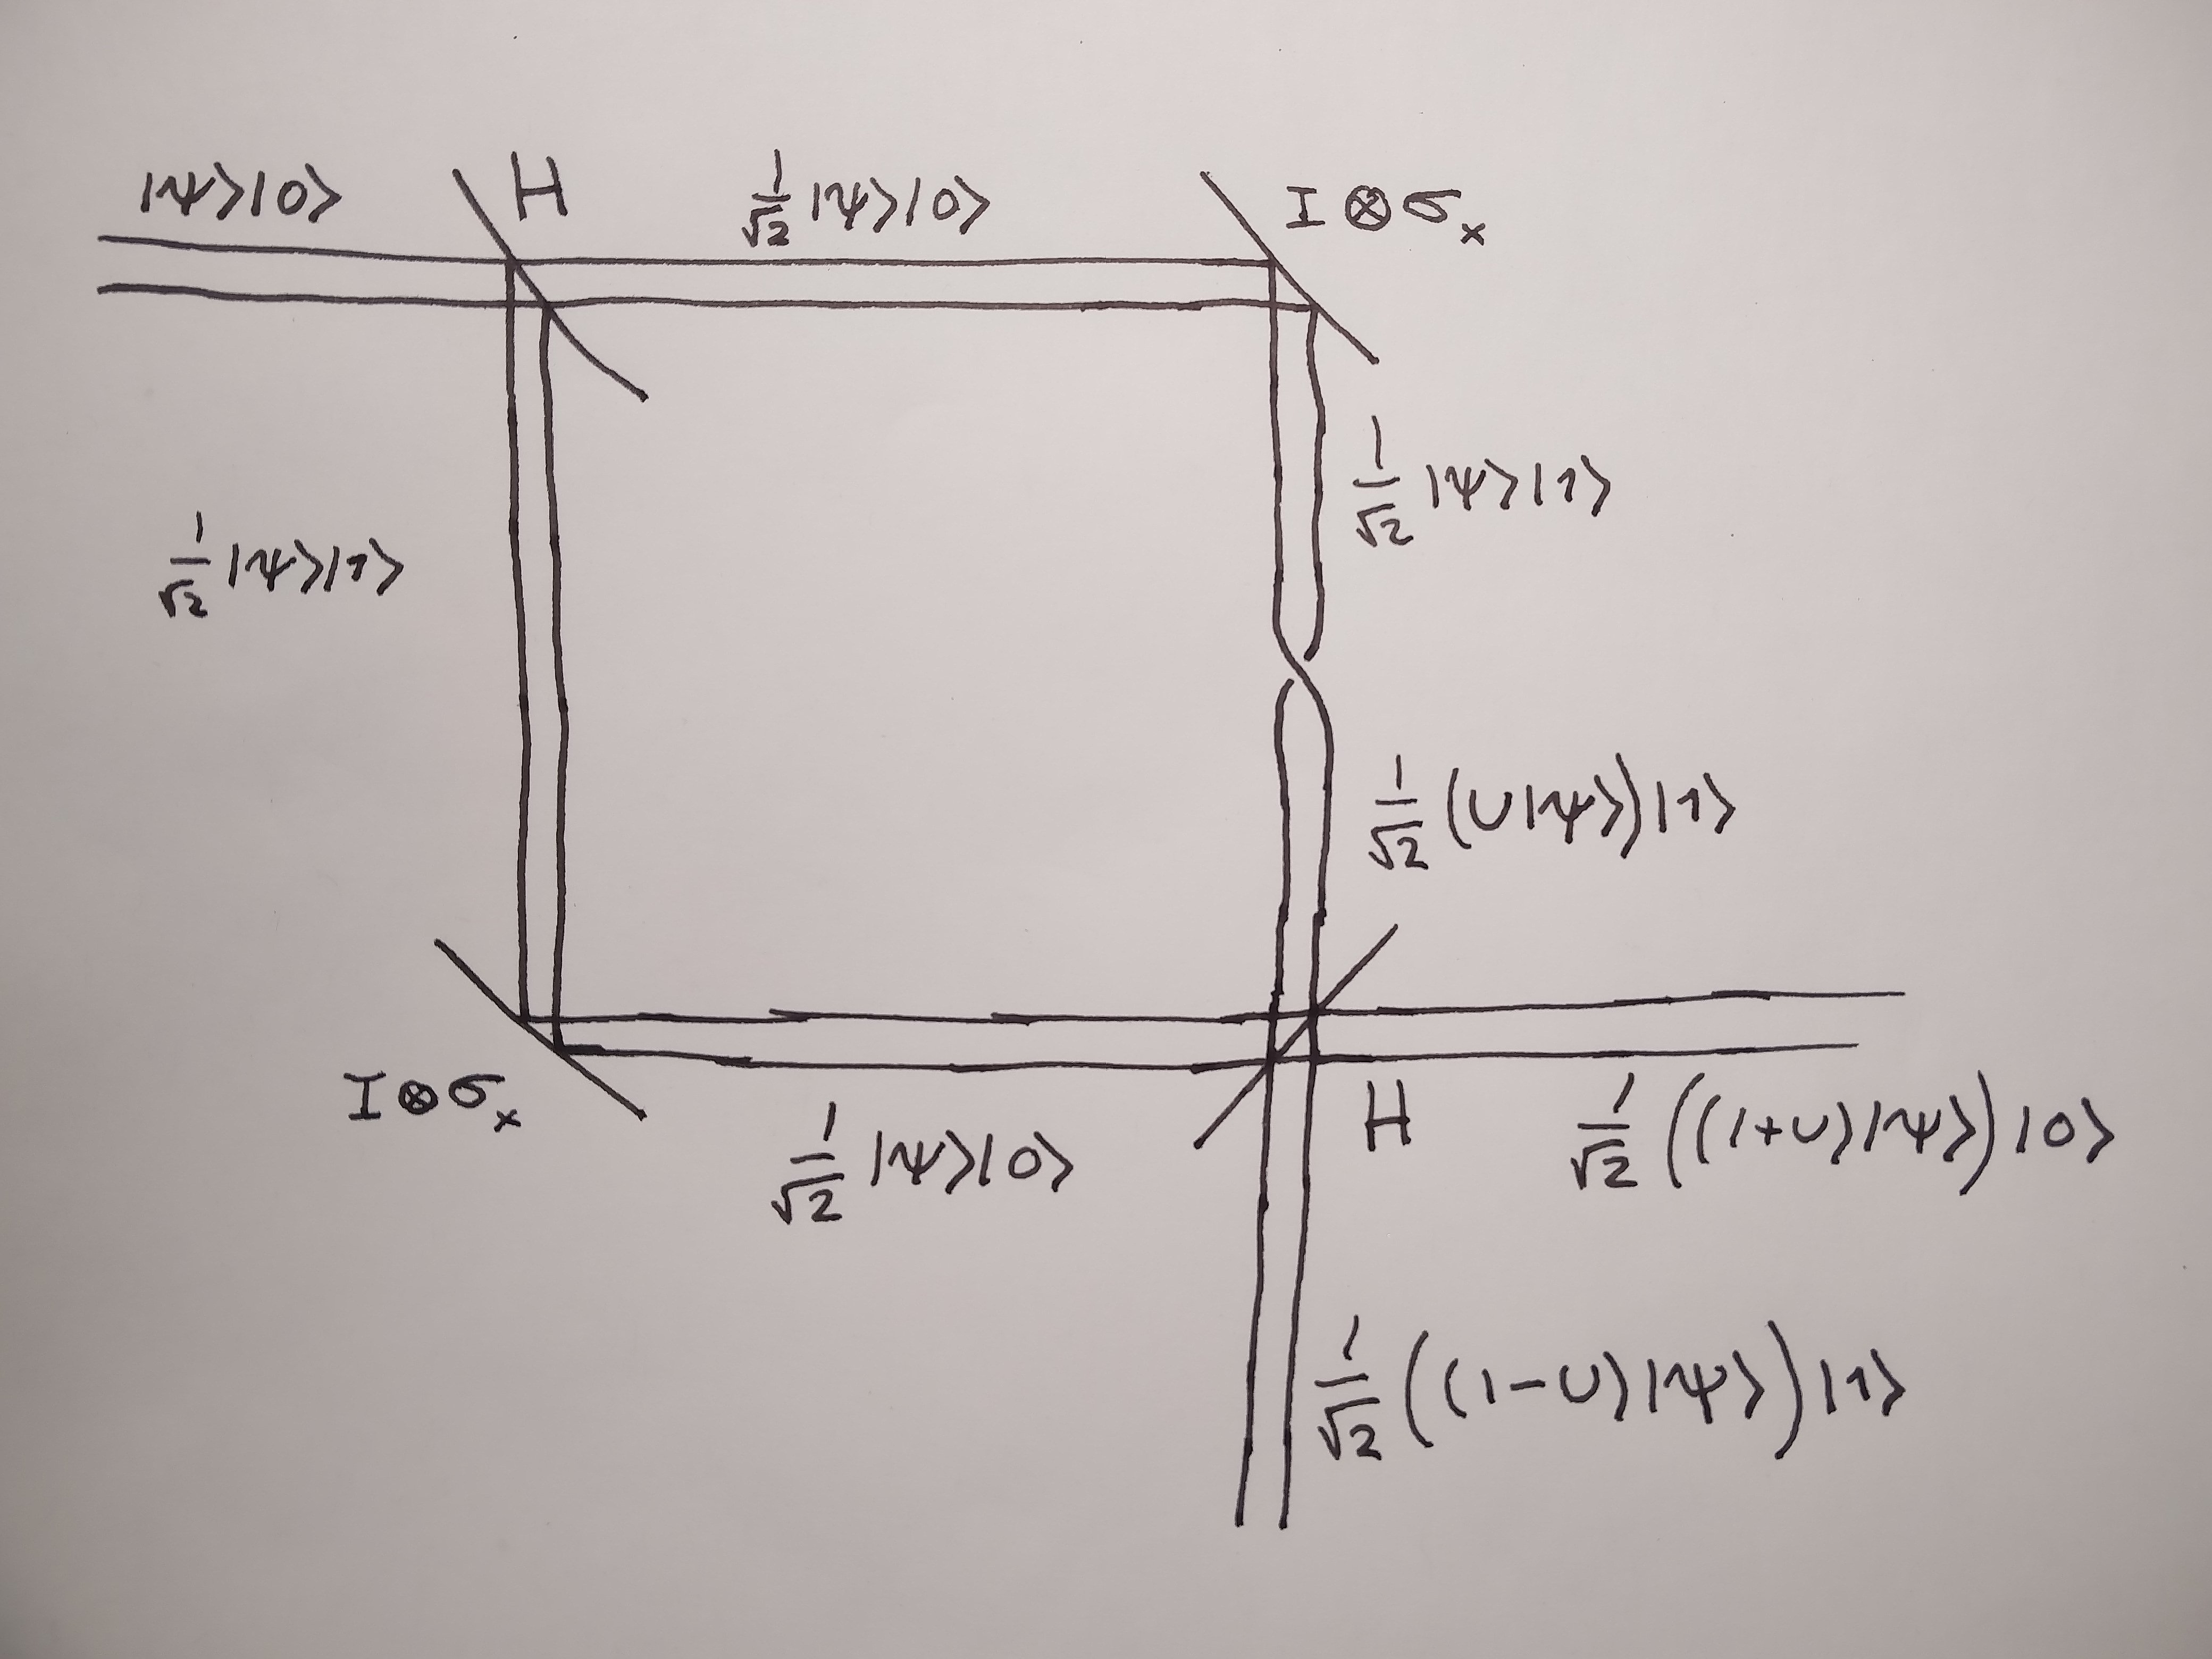 |ψ>|0>
H
1/√2 |ψ>|0>
I ⊗ σₓ
1/√2 |ψ>|1>
1/√2 |ψ>|1>
1/√2 (U|ψ>)|1>
I ⊗ σₓ
1/√2 |ψ>|0>
H
1/√2 ((1+U)|ψ>)|0>
1/√2 ((1-U)|ψ>)|1>